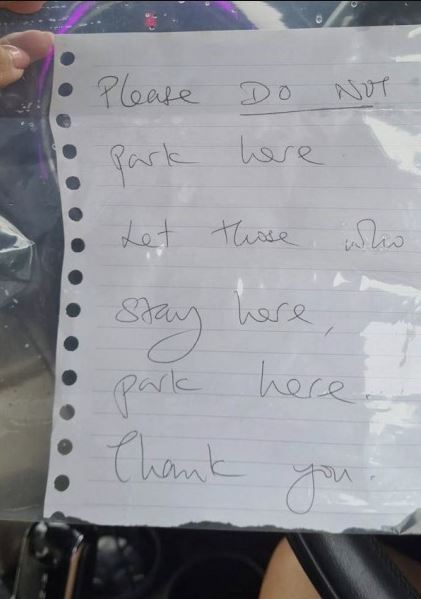 Please DO NOT
park here
Let those who
stay here,
park here.
Thank you.